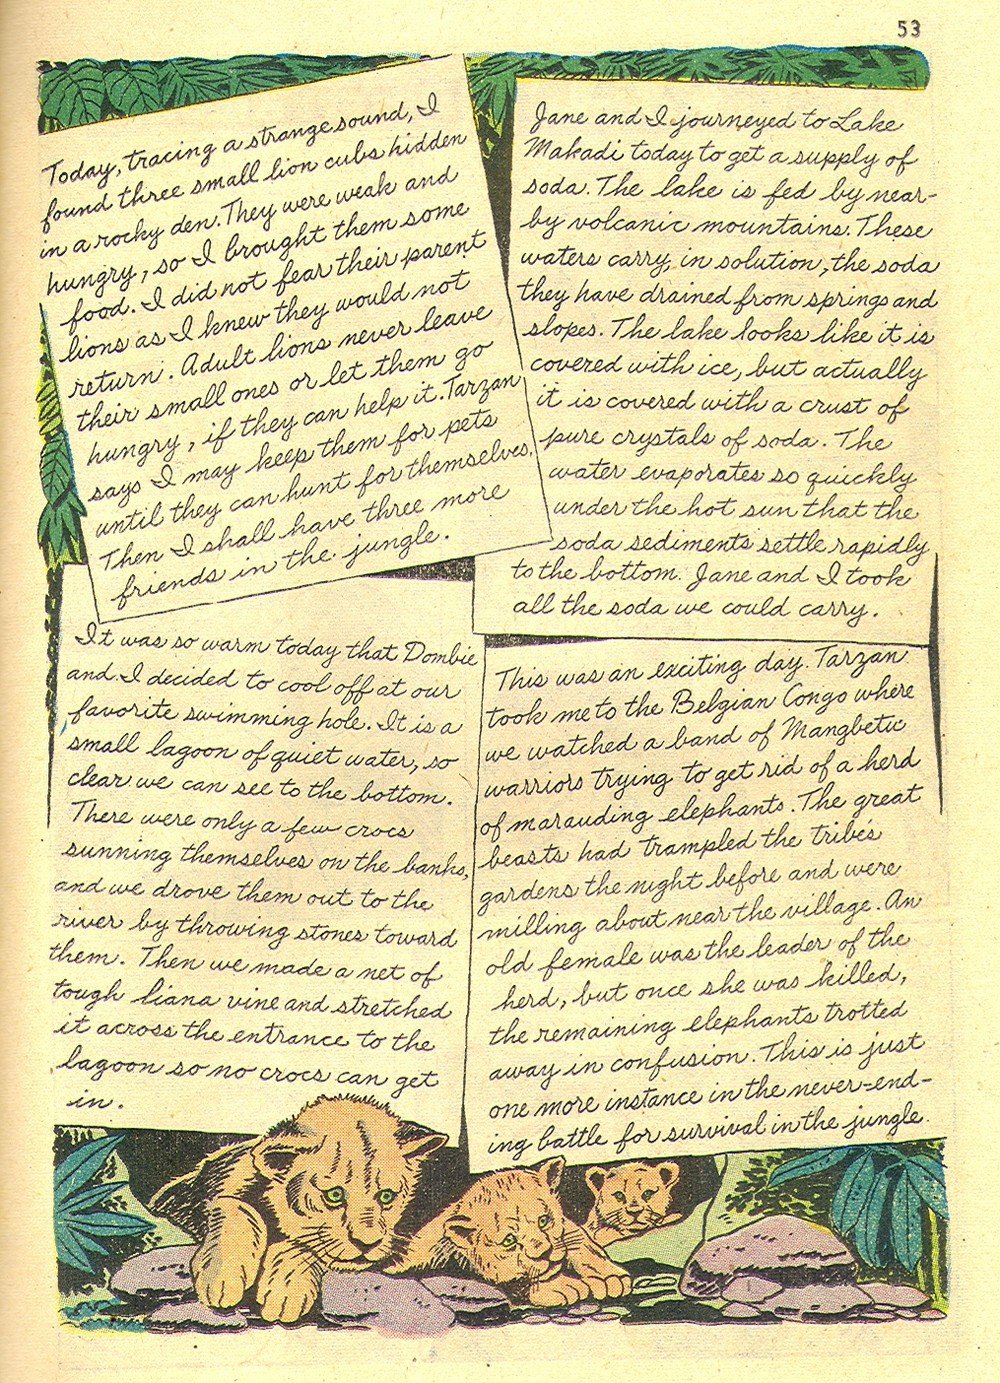 53
Today, tracing a strange sound, I
found three small lion cubs hidden
in a rocky den. They were weak and
hungry, so I brought them some
food. I did not fear their parent
lions as I knew they would not
return. Adult lions never leave
their small ones or let them go
hungry, if they can help it. Tarzan
says I may keep them for pets
until they can hunt for themselves.
Then I shall have three more
friends in the jungle.
Jane and I journeyed to Lake
Makadi today to get a supply of
soda. The lake is fed by near-
by volcanic mountains. These
waters carry, in solution, the soda
they have drained from springs and
slopes. The lake looks like it is
covered with ice, but actually
it is covered with a crust of
pure crystals of soda. The
water evaporates so quickly
under the hot sun that the
soda sediments settle rapidly
to the bottom. Jane and I took
all the soda we could carry.
It was so warm today that Dombie
and I decided to cool off at our
favorite swimming hole. It is a
small lagoon of quiet water, so
clear we can see to the bottom.
There were only a few crocs
sunning themselves on the banks,
and we drove them out to the
river by throwing stones toward
them. Then we made a net of
tough liana vine and stretched
it across the entrance to the
lagoon so no crocs can get
in.
This was an exciting day. Tarzan
took me to the Belgian Congo where
we watched a band of Mangbetu
warriors trying to get rid of a herd
of marauding elephants. The great
beasts had trampled the tribe's
gardens the night before and were
milling about near the village. An
old female was the leader of the
herd, but once she was killed,
the remaining elephants trotted
away in confusion. This is just
one more instance in the never-end-
ing battle for survival in the jungle.